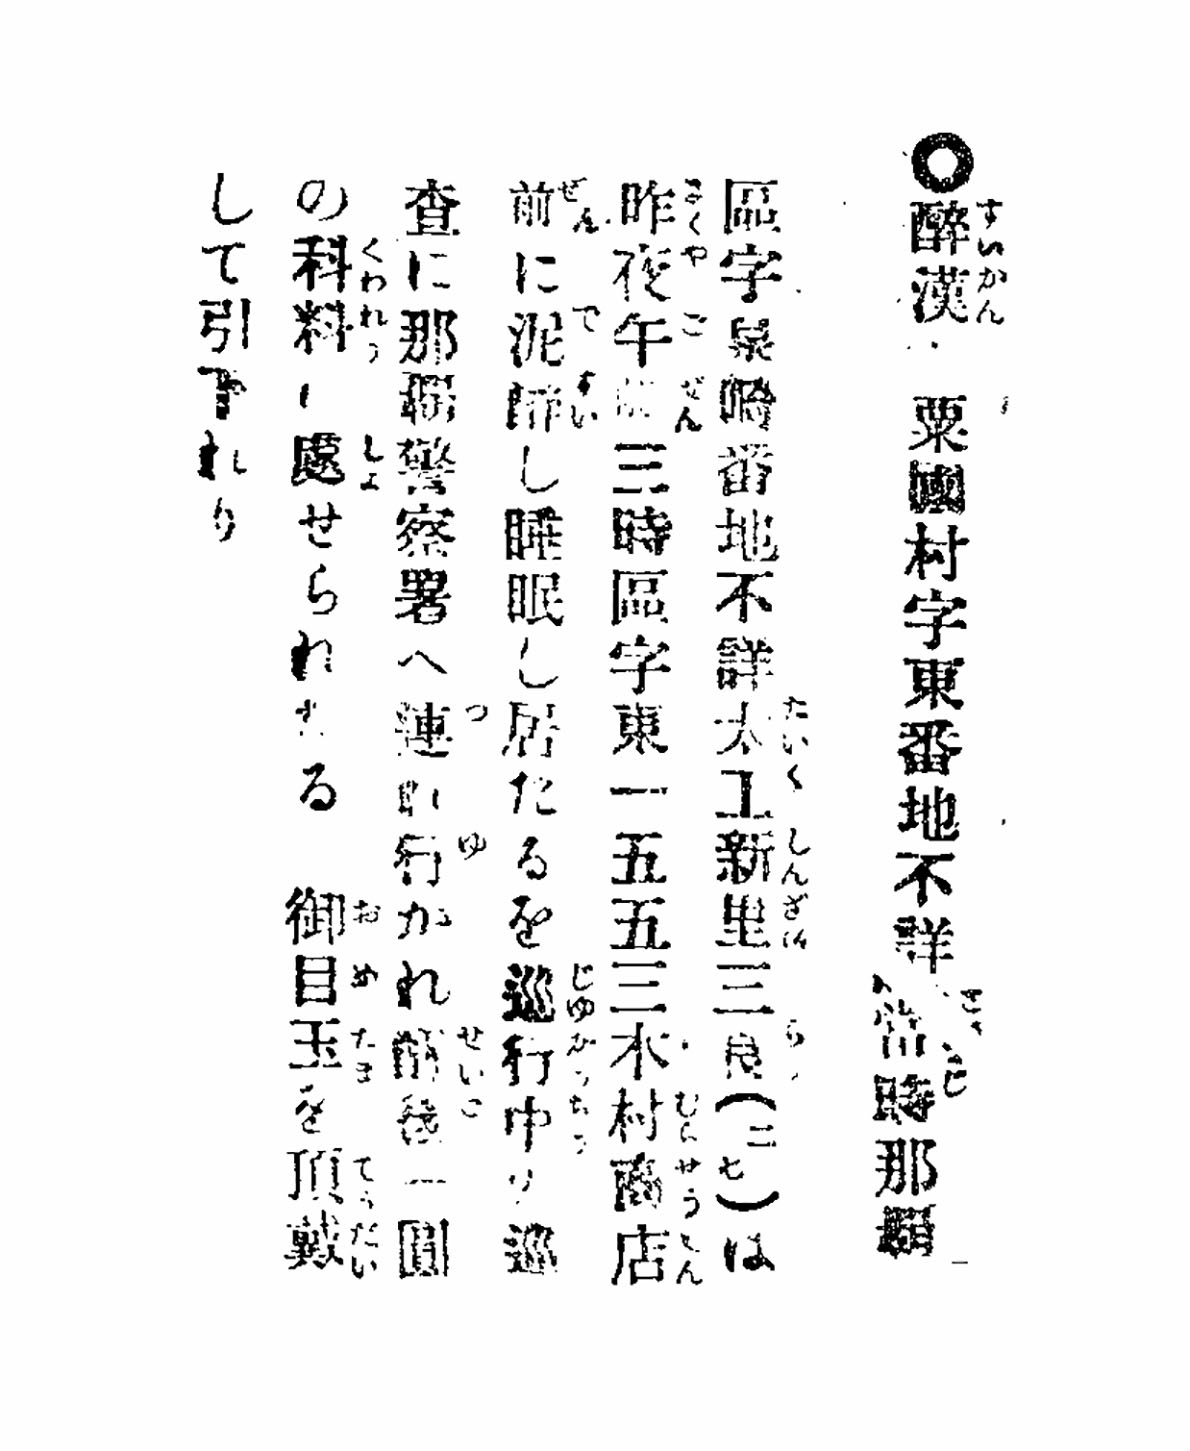 ◯醉漢 粟國村字東番地不詳當時那覇
區字泉崎番地不詳大工新里三良(二七)は
昨夜午前三時區字東一五五三木村商店
前に泥醉し睡眠し居たるを巡行中の巡
査に那覇警察署へ連れ行かれ醒後一圓
の科料に處せられたる 御目玉を頂戴
して引下れり